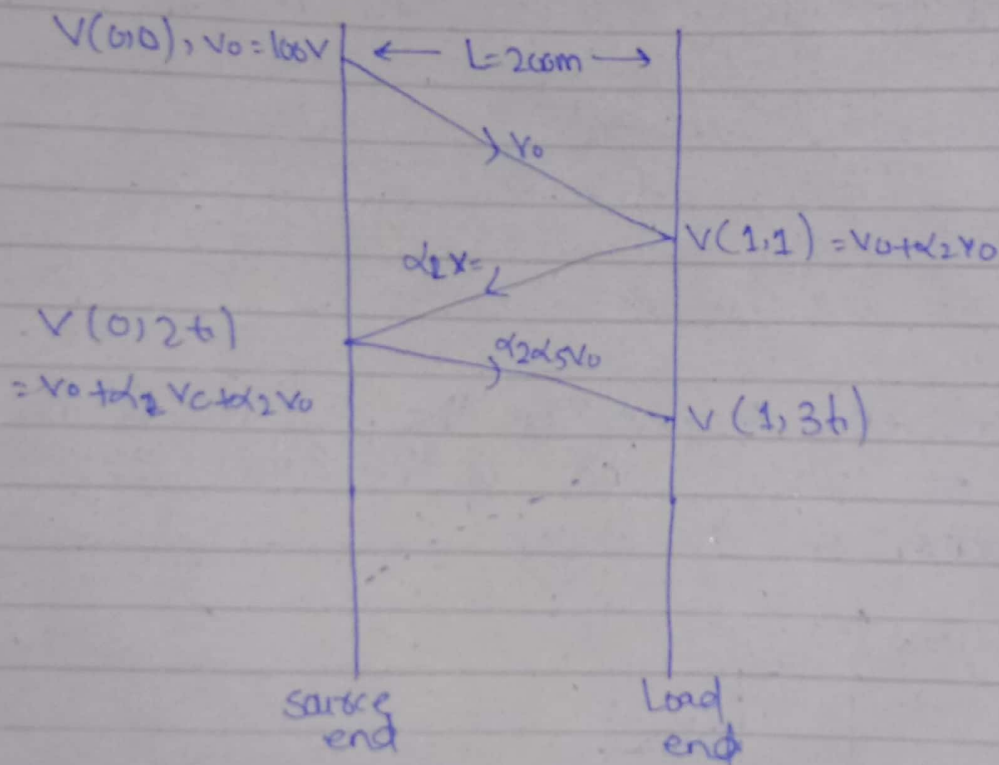 V(0,0), V0=100V
← L=200m →
V0
V(1,1) = V0+α2V0
α2V=
V(0,2t)
α2αsV0
= V0+α2 V0+α2V0
V(1,3t)
source
end
Load
end